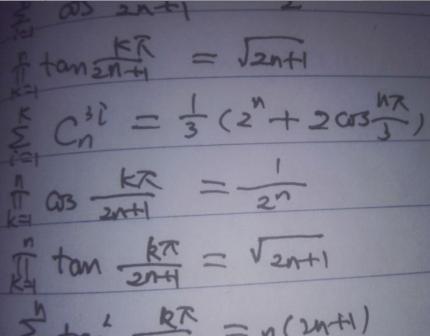 cos 2n+1 2
∏_{k=1}^{n} tan kπ/(2n+1) = √(2n+1)
∑_{i=1}^{k} C_n^{3i} = 1/3 (2^n + 2cos nπ/3)
∏_{k=1}^{n} cos kπ/(2n+1) = 1/2^n
∏_{k=1}^{n} tan kπ/(2n+1) = √(2n+1)
∑^{n} kπ = n(2n+1)